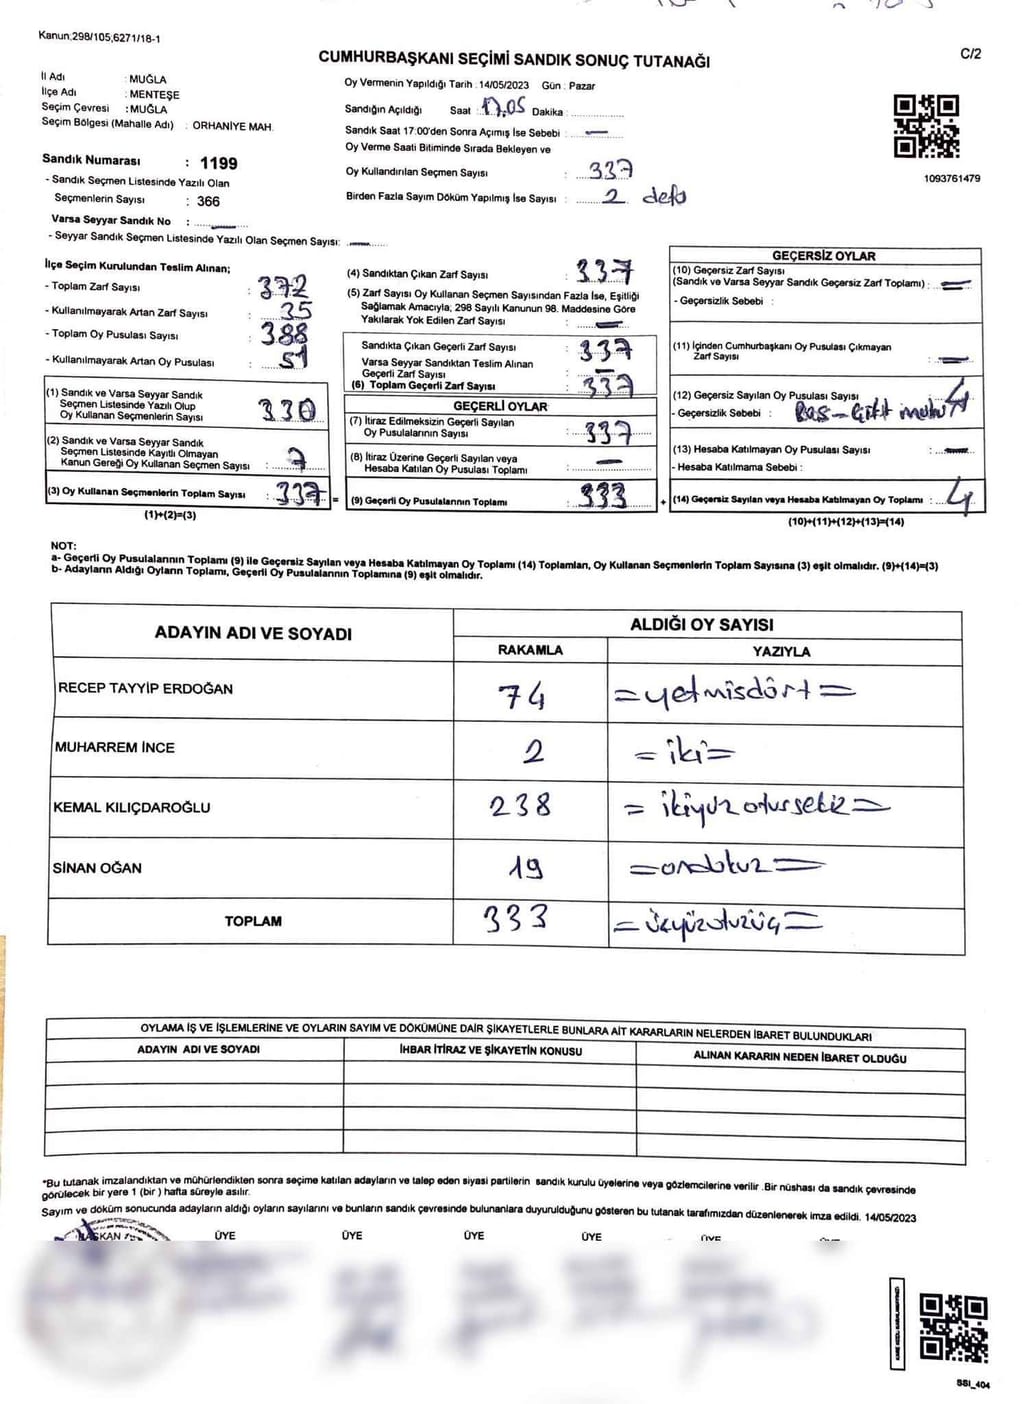 Kanun;298/105,6271/18-1
CUMHURBAŞKANI SEÇİMİ SANDIK SONUÇ TUTANAĞI
C/2
İl Adı : MUĞLA
İlçe Adı : MENTEŞE
Seçim Çevresi : MUĞLA
Seçim Bölgesi (Mahalle Adı) : ORHANİYE MAH.
Sandık Numarası : 1199
- Sandık Seçmen Listesinde Yazılı Olan
Seçmenlerin Sayısı : 366
Varsa Seyyar Sandık No :
- Seyyar Sandık Seçmen Listesinde Yazılı Olan Seçmen Sayısı:
Oy Vermenin Yapıldığı Tarih : 14/05/2023 Gün : Pazar
Sandığın Açıldığı Saat : 17,05 Dakika :
Sandık Saat 17:00'den Sonra Açımış İse Sebebi : —
Oy Verme Saati Bitiminde Sırada Bekleyen ve
Oy Kullandırılan Seçmen Sayısı : 337
Birden Fazla Sayım Döküm Yapılmış İse Sayısı : 2 defa
1093761479
İlçe Seçim Kurulundan Teslim Alınan;
- Toplam Zarf Sayısı : 372
- Kullanılmayarak Artan Zarf Sayısı : 35
- Toplam Oy Pusulası Sayısı : 388
- Kullanılmayarak Artan Oy Pusulası : 51
(1) Sandık ve Varsa Seyyar Sandık
Seçmen Listesinde Yazılı Olup
Oy Kullanan Seçmenlerin Sayısı : 330
(2) Sandık ve Varsa Seyyar Sandık
Seçmen Listesinde Kayıtlı Olmayan
Kanun Gereği Oy Kullanan Seçmen Sayısı : 7
(3) Oy Kullanan Seçmenlerin Toplam Sayısı : 337 =
(1)+(2)=(3)
(4) Sandıktan Çıkan Zarf Sayısı : 337
(5) Zarf Sayısı Oy Kullanan Seçmen Sayısından Fazla İse, Eşitliği
Sağlamak Amacıyla, 298 Sayılı Kanunun 98. Maddesine Göre
Yakılarak Yok Edilen Zarf Sayısı : —
Sandıkta Çıkan Geçerli Zarf Sayısı : 337
Varsa Seyyar Sandıktan Teslim Alınan
Geçerli Zarf Sayısı : —
(6) Toplam Geçerli Zarf Sayısı : 337
GEÇERLİ OYLAR
(7) İtiraz Edilmeksizin Geçerli Sayılan
Oy Pusulalarının Sayısı : 337
(8) İtiraz Üzerine Geçerli Sayılan veya
Hesaba Katılan Oy Pusulası Toplamı : —
(9) Geçerli Oy Pusulalarının Toplamı : 333 +
GEÇERSİZ OYLAR
(10) Geçersiz Zarf Sayısı
(Sandık ve Varsa Seyyar Sandık Geçersiz Zarf Toplamı) : —
- Geçersizlik Sebebi :
(11) İçinden Cumhurbaşkanı Oy Pusulası Çıkmayan
Zarf Sayısı : —
(12) Geçersiz Sayılan Oy Pusulası Sayısı : 4
- Geçersizlik Sebebi : Boş - Çift mühür
(13) Hesaba Katılmayan Oy Pusulası Sayısı : —
- Hesaba Katılmama Sebebi :
(14) Geçersiz Sayılan veya Hesaba Katılmayan Oy Toplamı : 4
(10)+(11)+(12)+(13)=(14)
NOT:
a- Geçerli Oy Pusulalarının Toplamı (9) ile Geçersiz Sayılan veya Hesaba Katılmayan Oy Toplamı (14) Toplamları, Oy Kullanan Seçmenlerin Toplam Sayısına (3) eşit olmalıdır. (9)+(14)=(3)
b- Adayların Aldığı Oyların Toplamı, Geçerli Oy Pusulalarının Toplamına (9) eşit olmalıdır.
ADAYIN ADI VE SOYADI
ALDIĞI OY SAYISI
RAKAMLA YAZIYLA
RECEP TAYYİP ERDOĞAN 74 =yetmişdört=
MUHARREM İNCE 2 =iki=
KEMAL KILIÇDAROĞLU 238 =ikiyüz otuzsekiz=
SİNAN OĞAN 19 =ondokuz=
TOPLAM 333 =üçyüzotuzüç=
OYLAMA İŞ VE İŞLEMLERİNE VE OYLARIN SAYIM VE DÖKÜMÜNE DAİR ŞİKAYETLERLE BUNLARA AİT KARARLARIN NELERDEN İBARET BULUNDUKLARI
ADAYIN ADI VE SOYADI İHBAR İTİRAZ VE ŞİKAYETİN KONUSU ALINAN KARARIN NEDEN İBARET OLDUĞU
*Bu tutanak imzalandıktan ve mühürlendikten sonra seçime katılan adayların ve talep eden siyasi partilerin sandık kurulu üyelerine veya gözlemcilerine verilir .Bir nüshası da sandık çevresinde
görülecek bir yere 1 (bir ) hafta süreyle asılır.
Sayım ve döküm sonucunda adayların aldığı oyların sayılarını ve bunların sandık çevresinde bulunanlara duyurulduğunu gösteren bu tutanak tarafımızdan düzenlenerek imza edildi. 14/05/2023
BAŞKAN ÜYE ÜYE ÜYE ÜYE ÜYE
SSI_404